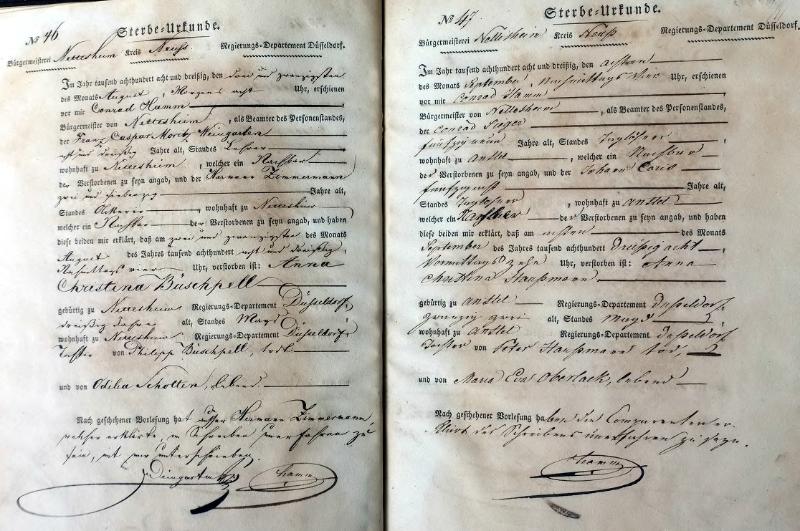 № 46 Sterbe-Urkunde.
Bürgermeisterei Nettesheim Kreis Neuß Regierungs-Departement Düsseldorf.
Im Jahr tausend achthundert acht und dreißig, den drei und zwanzigsten
des Monats August, Morgens acht Uhr, erschienen
vor mir Conrad Hamm
Bürgermeister von Nettesheim, als Beamter des Personenstandes,
der Franz Caspar Moritz Weingarten
acht und dreißig Jahre alt, Standes Lehrer
wohnhaft zu Nettesheim, welcher ein Nachbar
der Verstorbenen zu seyn angab, und der Hermann Zimmermann
zwei und siebenzig Jahre alt,
Standes Ackerer, wohnhaft zu Nettesheim
welcher ein Nachbar der Verstorbenen zu seyn angab, und haben
diese beiden mir erklärt, daß am zwei und zwanzigsten des Monats
August des Jahres tausend achthundert acht und dreißig,
Nachmittags vier Uhr, verstorben ist: Anna
Christina Büschpell
gebürtig zu Nettesheim Regierungs-Departement Düsseldorf,
dreißig Jahre alt, Standes Magd
wohnhaft zu Nettesheim Regierungs-Departement Düsseldorf
Tochter von Philipp Büschpell, todt
und von Odilia Schotten, lebend
Nach geschehener Vorlesung hat außer Hermann Zimmermann,
welcher erklärte, im Schreiben unerfahren zu
sein, mit mir unterschrieben.
Weingarten Hamm
№ 47 Sterbe-Urkunde.
Bürgermeisterei Nettesheim Kreis Neuß Regierungs-Departement Düsseldorf.
Im Jahr tausend achthundert acht und dreißig, den achten
des Monats September, Nachmittags vier Uhr, erschienen
vor mir Conrad Hamm
Bürgermeister von Nettesheim, als Beamter des Personenstandes,
der Conrad
Jahre alt, Standes Taglöhner
wohnhaft zu Anstel, welcher ein Nachbar
der Verstorbenen zu seyn angab, und der Johann
Jahre alt,
Standes Taglöhner, wohnhaft zu Anstel
welcher ein Nachbar der Verstorbenen zu seyn angab, und haben
diese beiden mir erklärt, daß am des Monats
September des Jahres tausend achthundert dreissig acht,
Vormittags zehn Uhr, verstorben ist: Anna
Christina
gebürtig zu Anstel Regierungs-Departement Düsseldorf
zwanzig zwei alt, Standes Magd
wohnhaft zu Anstel Regierungs-Departement Düsseldorf
Tochter von Peter tod,
und von Maria Eva Oberlack, lebend
Nach geschehener Vorlesung haben die Comparenten er-
klärt des Schreibens unerfahren zu seyn.
Hamm